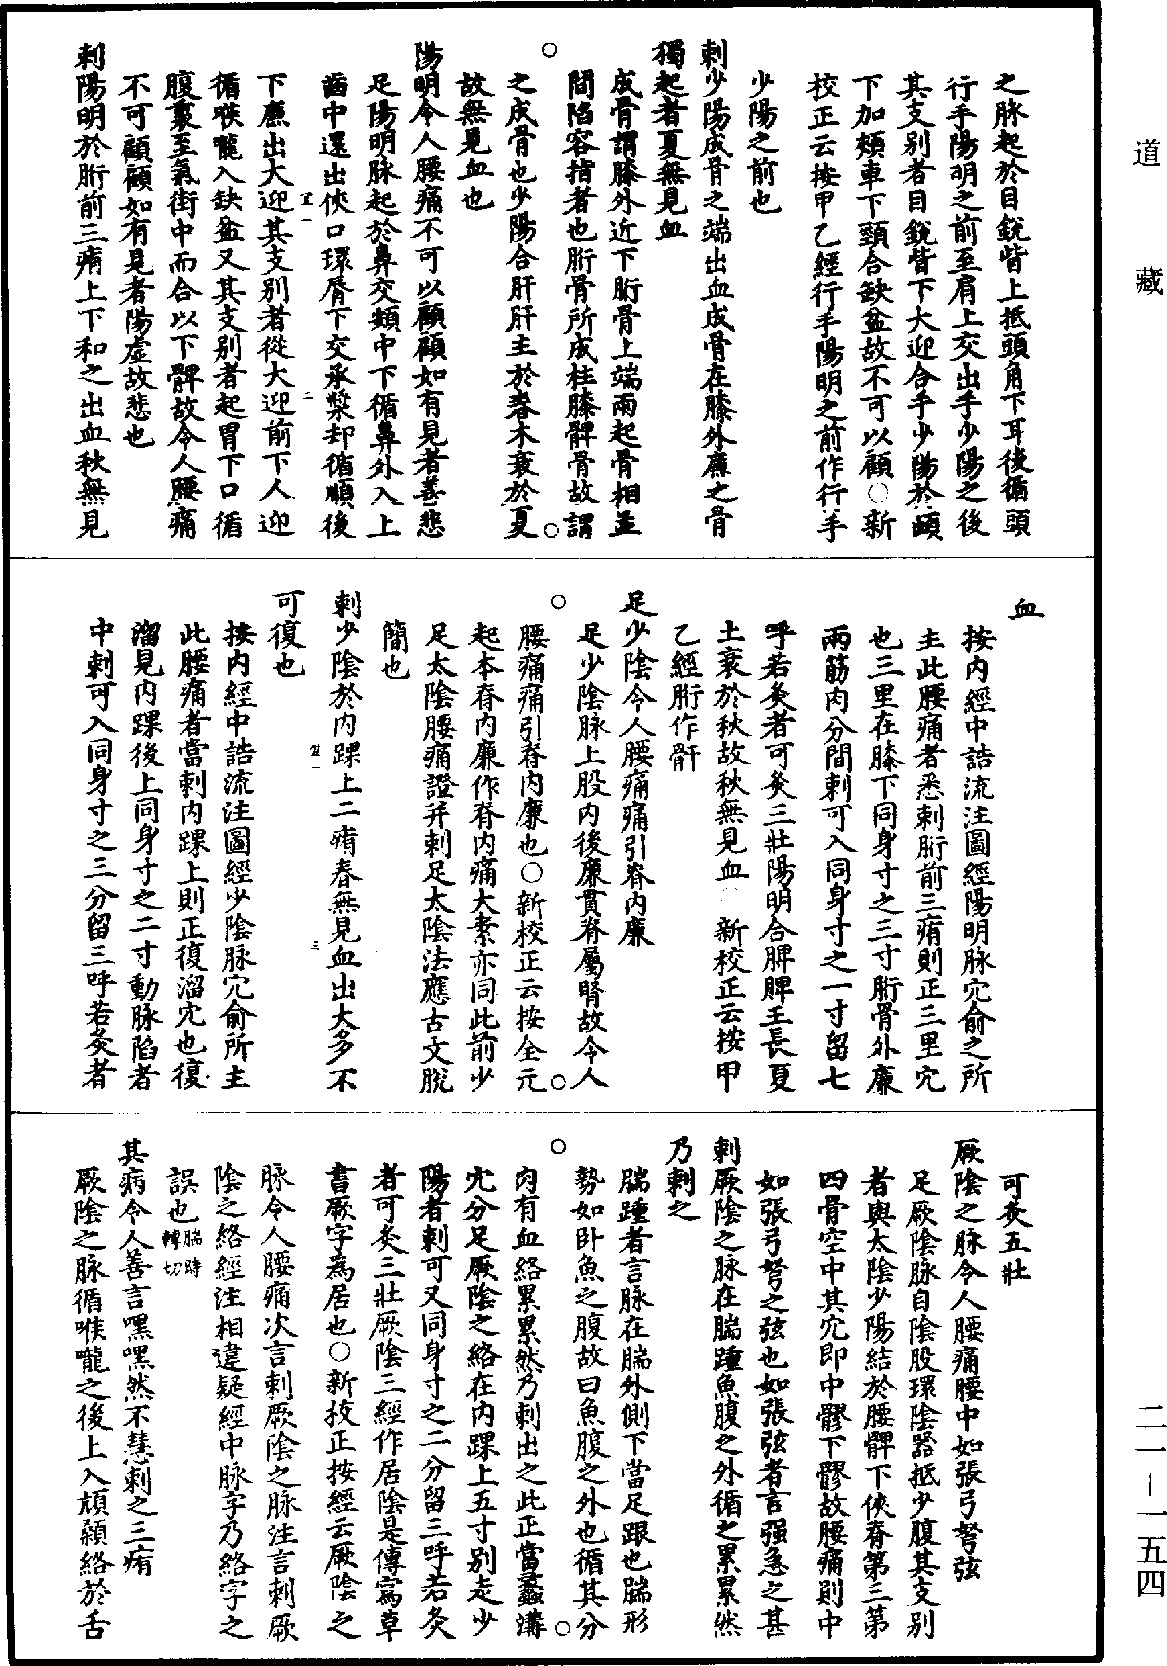 道藏
之脉起於目銳眥上抵頭角下耳後循頭
行手陽明之前至肩上交出手少陽之後
其支别者目銳眥下大迎合手少陽於䪼
下加頰車下頸合缺盆故不可以顧○新
校正云按甲乙經行手陽明之前作行手
少陽之前也
刺少陽成骨之端出血成骨在膝外廉之骨
獨起者夏無見血
成骨謂膝外近下胻骨上端兩起骨相並
間陷容指者也胻骨所成柱膝髀骨故謂
之成骨也少陽合肝肝主於春木衰於夏
故無見血也
陽明令人腰痛不可以顧顧如有見者善悲
足陽明脉起於鼻交頞中下循鼻外入上
齒中還出俠口環脣下交承漿却循頤後
下廉出大迎其支别者從大迎前下人迎
循喉嚨入缺盆又其支别者起胃下口循
腹裏至氣街中而合以下髀故令人腰痛
不可顧顧如有見者陽虛故悲也
刺陽明於胻前三痏上下和之出血秋無見
血
按内經中誥流注圖經陽明脉穴俞之所
主此腰痛者悉刺胻前三痏則正三里穴
也三里在膝下同身寸之三寸胻骨外廉
兩筋肉分間刺可入同身寸之一寸留七
呼若灸者可灸三壯陽明合脾脾王長夏
土衰於秋故秋無見血 新校正云按甲
乙經胻作骭
足少陰令人腰痛痛引脊内廉
足少陰脉上股内後廉貫脊屬腎故令人
腰痛痛引脊内廉也○新校正云按全元
起本脊内廉作脊内痛大素亦同此前少
足太陰腰痛證并刺足太陰法應古文脫
簡也
刺少陰於内踝上二痏春無見血出大多不
可復也
按内經中誥流注圖經少陰脉穴俞所主
此腰痛者當刺内踝上則正復溜穴也復
溜見内踝後上同身寸之二寸動脉陷者
中刺可入同身寸之三分留三呼若灸者
可灸五壯
厥陰之脉令人腰痛腰中如張弓弩弦
足厥陰脉自陰股環陰器抵少腹其支别
者與太陰少陽結於腰髀下俠脊第三第
四骨空中其穴即中髎下髎故腰痛則中
如張弓弩之弦也如張弦者言强急之甚
刺厥陰之脉在腨踵魚腹之外循之累累然
乃刺之
腨踵者言脉在腨外側下當足跟也腨形
勢如卧魚之腹故曰魚腹之外也循其分
肉有血絡累累然乃刺出之此正當蠡溝
穴分足厥陰之絡在内踝上五寸别走少
陽者刺可又同身寸之二分留三呼若灸
者可灸三壯厥陰三經作居陰是傳寫草
書厥字為居也○新技正按經云厥陰之
脉令人腰痛次言刺厥陰之脉注言刺厥
陰之絡經注相違疑經中脉字乃絡字之
誤也腨時轉切
其病令人善言嘿嘿然不慧刺之三痏
厥陰之脉循喉嚨之後上入頏顙絡於舌
二一—一五四